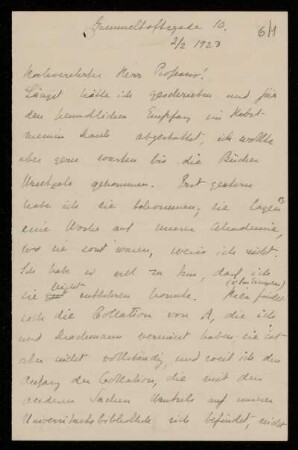 Gammeltoftsgade 10.
6/1
2/2 1923
Hochverehrter Herr Professor!
Längst hätte ich geschrieben und für
den freundlichen Empfang im Herbst
meinen Dank abgestattet, ich wollte
aber gerne warten bis die Bücher
Usenhers angekommen. Erst gestern
habe ich sie bekommen; sie lagen
eine Woche auf unserer Akademie,
wo sie sonst waren, weiss ich nicht.
Ich habe so viel zu tun, dass ich
sie nicht entbehren konnte. Hier findet
sich die Collation von A, die ich
und Drachmann vermisst haben; sie ist
aber nicht vollständig, und soweit ich den
Anfang der Collation, die mit den
anderen Sachen auf unserer
Universitätsbibliothek sich befindet, nicht